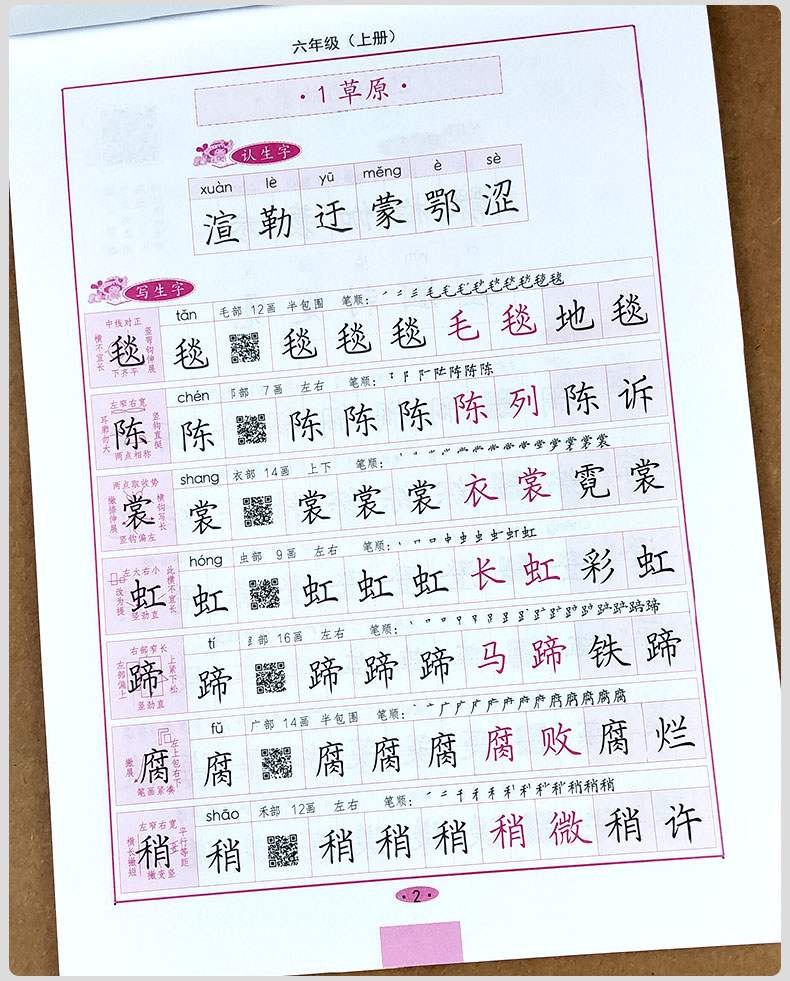 六年级（上册）
·1 草原·
认生字
xuàn lè yū měng è sè
渲 勒 迂 蒙 鄂 涩
写生字
中线对正 横不宜长 竖弯钩伸展 下齐平 毯
tǎn 毛部 12画 半包围 笔顺：
毯 毯 毯 毯 毛 毯 地 毯
左窄右宽 耳廓勿大 竖钩直挺 两点相称 陈
chén 阝部 7画 左右 笔顺：
陈 陈 陈 陈 陈 列 陈 诉
两点取收势 撇捺伸展 横钩写长 竖钩偏左 裳
shang 衣部 14画 上下 笔顺：
裳 裳 裳 裳 衣 裳 霓 裳
左大右小 改为提 此横不宜长 竖劲直 虹
hóng 虫部 9画 左右 笔顺：
虹 虹 虹 虹 长 虹 彩 虹
右部窄长 左部偏上 上紧下松 竖劲直 蹄
tí 𧾷部 16画 左右 笔顺：
蹄 蹄 蹄 蹄 马 蹄 铁 蹄
撇展 左上包右下 笔画紧凑 腐
fǔ 广部 14画 半包围 笔顺：
腐 腐 腐 腐 腐 败 腐 烂
左窄右宽 横长撇短 平行等距 撇变竖 稍
shāo 禾部 12画 左右 笔顺：
稍 稍 稍 稍 稍 微 稍 许
2